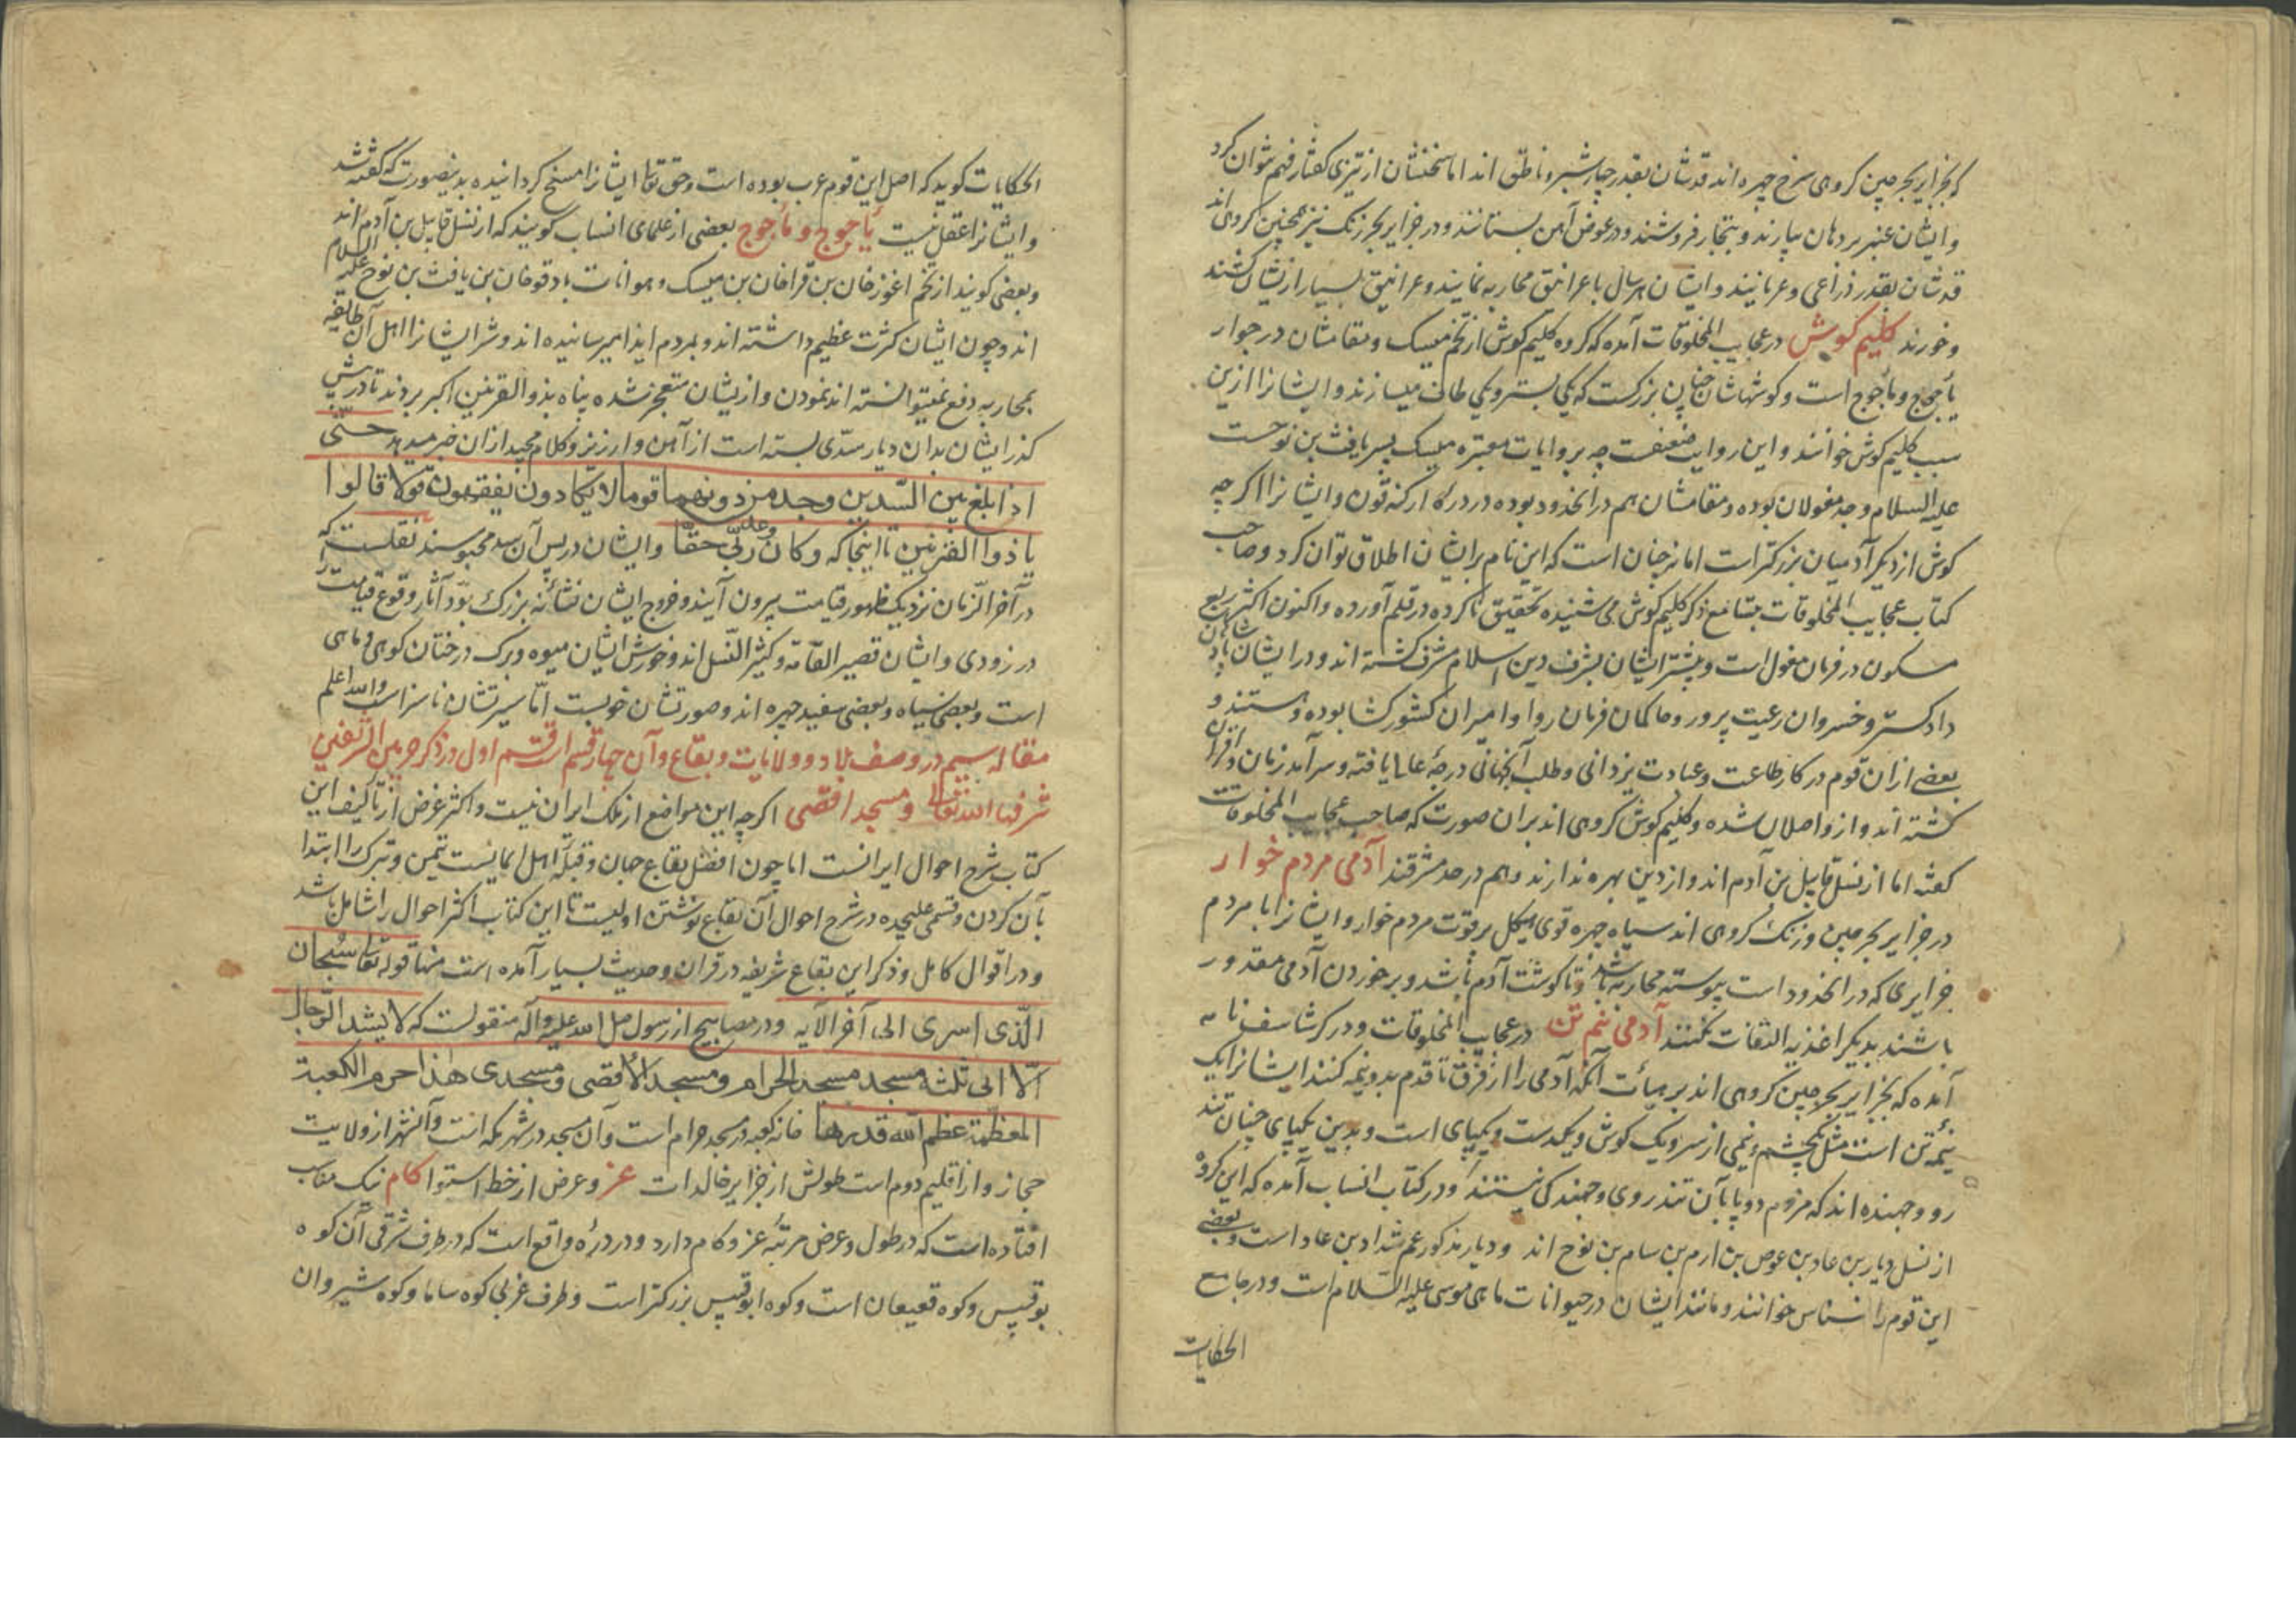 که بجزایر بحر چین کروهی سرخ چهره اند قدشان بقدر چهار شبر و ناطق اند اما سخنشان از تیزی کفتار فهم نتوان کرد
و ایشان عنبر بر دهان بیارند و بتجار فروشند و در عوض آهن بستانند و در جزایر بحر زنک نیز همچنین کروهی اند
قدشان بقدر ذراعی و عریانند و ایشان هر سال با غرانیق محاربه نمایند و غرانیق بسیار ازیشان کشند
و خورند کلیم کوش در عجایب المخلوقات آمده که کروه کلیم کوش از تخم میسک و مقامشان در جوار
یأجوج و مأجوج است و کوشهاشان چنان بزرکست که یکی بستر و یکی طاف میسازند و ایشانرا ازین
سبب کلیم کوش خوانند و این روایت ضعفست چه بروایات معتبره میسک پسر یافث بن نوحست
علیه السلام و جد مغولان بوده و مقامشان هم در آنحدود بوده در دره ارکنه قون و ایشانرا اکرچه
کوش از دیکر آدمیان بزرکتر است اما نه چنان است که این نام بر ایشان اطلاق توان کرد و صاحب
کتاب عجایب المخلوقات بتسامع ذکر کلیم کوش می شنیده تحقیق ناکرده در قلم آورده و اکنون اکثر ربع
مسکون در فرمان مغول است و بیشتر ایشان بشرف دین اسلام مشرف کشته اند و در ایشان پادشاهان
دادکستر و خسروان رعیت پرور و حاکمان فرمان روا و امیران کشورکشا بوده و هستند و
بعضی ازان قوم در کار طاعت و عبادت یزدانی و طلب آنجهانی درجهٔ عالی یافته و سرآمد زمان و اقران
کشته اند و از واصلان شده و کلیم کوش کروهی اند بران صورت که صاحب عجایب المخلوقات
کفته اما از نسل قابیل بن آدم اند و از دین بهره ندارند و هم در حد مشرقند آدمی مردم خوار
در جزایر بحر چین و زنک کروهی اند سیاه چهره قوی هیکل پر قوت مردم خوار و ایشانرا با مردم
جزایری که در آنحدود است پیوسته محاربه باشد و تا کوشت آدم باشد و بر خوردن آدمی مقدور
باشند بدیکر اغذیه التفات نکنند آدمی نیم تن در عجایب المخلوقات و در کرشاسف نامه
آمده که بجزایر بحر چین کروهی اند بر هیأت آنکه آدمی را از فرق تا قدم بدو نیمه کنند ایشانرا یک
نیمه تن است مثل یکچشم و نیمی از سر و یک کوش و یکدست و یکپای است و بدین یکپای چنان تند
رو و جهنده اند که مردم دوپا بآن تندروی و جهندکی نیستند و در کتاب انساب آمده که این کروه
از نسل دیار بن عاد بن عوص بن ارم بن سام بن نوح اند و دیار مذکور عم شداد بن عاد است و بعضی
این قوم را نسناس خوانند و مانند ایشان در حیوانات ماهی موسی علیه السلام است و در جامع
الحکایات
الحکایات کوید که اصل این قوم عرب بوده است و حق تعالی ایشانرا مسخ کردانیده بدینصورت که کفته شد
و ایشانرا عقل نیست یأجوج و مأجوج بعضی از علمای انساب کویند که از نسل قابیل بن آدم اند
و بعضی کویند از تخم اغوز خان بن قراخان بن میسک و هوانات باد قوخان بن یافث بن نوح علیه السلام
اند و چون ایشان کثرت عظیم داشته اند و بمردم ایذا میرسانیده اند و شر ایشانرا اهل آن طایفه
بمحاربه دفع نمیتوانسته اند نمودن و ازیشان متعجز شده پناه بذوالقرنین اکبر بردند تا در پیش
کذر ایشان بدان دیار سدی بسته است از آهن و ارزیز و کلام مجید ازان خبر میدهد حتی
اذا بلغ بین السدین وجد من دونهما قوما لا یکادون یفقهون قولا قالوا
یا ذوا القرنین تا اینجا که و کان وعد ربی حقا و ایشان در پس آن سد محبوسند نقلست که
در آخر الزمان نزدیک ظهور قیامت بیرون آیند و خروج ایشان نشانهٔ بزرک بود آثار وقوع قیامت را
در زودی و ایشان قصیر القامة و کثیر النسل اند و خورش ایشان میوه و برک درختان کوهی و ماهی
است و بعضی سیاه و بعضی سفید چهره اند و صورتشان خوبست اما سیرتشان ناسزاست والله اعلم
مقاله سیم در وصف بلاد و ولایات و بقاع و آن چهار قسم است قسم اول در ذکر حرمین الشریفین
شرفها الله تعالی و مسجد اقصی اکرچه این مواضع از ملک ایران نیست و اکثر غرض از تألیف این
کتاب شرح احوال ایرانست اما چون افضل بقاع جهان و قبلهٔ اهل ایمانست تیمن و تبرک را ابتدا
بآن کردن و قسمی علیحده در شرح احوال آن بقاع نوشتن اولیست تا این کتاب اکثر احوال را شامل باشد
و در اقوال کامل و ذکر این بقاع شریفه در قران و حدیث بسیار آمده است منها قوله تعالی سبحان
الذی اسری الی آخر الآیه و در مصابیح از رسول صلی الله علیه وآله منقولست که لا یشد الرحال
الا الی ثلثة مسجد مسجد الحرام و مسجد الاقصی و مسجدی هذا حرم الکعبة
المعظمة عظم الله قدرها خانه کعبه در مسجد حرام است و آن مسجد در شهر مکه است و آنشهر از ولایت
حجاز و از اقلیم دوم است طولش از جزایر خالدات عز و عرض از خط استوا کام نیک مناسب
افتاده است که در طول و عرض مرتبهٔ عز و کام دارد و در درهٔ واقع است که در طرف شرقی آن کوه
بوقبیس و کوه قعیعان است و کوه ابوقبیس بزرکتر است و طرف غربی کوه ساما و کوه شیروان